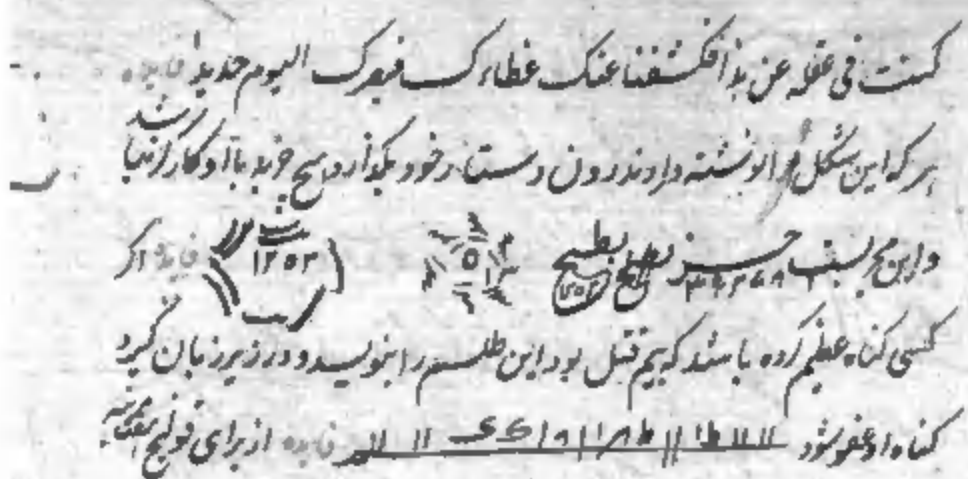 کنت فی غفلة عن هذا فکشفنا عنک غطاءک فبصرک الیوم حدید فایده
هر که این شکل را نوشته دارد در درون دستار خود بگذارد هیچ حربه با او کارگر نباشد
و این مجربست ۱۲۵۲ فایده اکر
کسی کناه عظیم کرده باشد که بیم قتل بود این طلسم را بنویسد و در زیر زبان گیرد
کناه او عفو شود فایده از برای قولنج